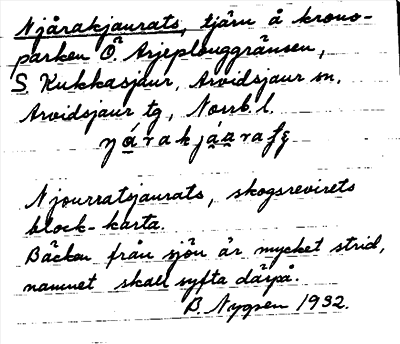 Njårakjaurats, tjärn å krono-
parken Ö. Arjeplouggränsen,
S Kukkasjaur, Arvidsjaur sn.
Arvidsjaur tg, Norrb. l.
Njourratsjaurats, skogsrevirets
block-karta.
Bäcken från sjön är mycket strid,
namnet skall syfta därpå.
B. Nygren 1932.